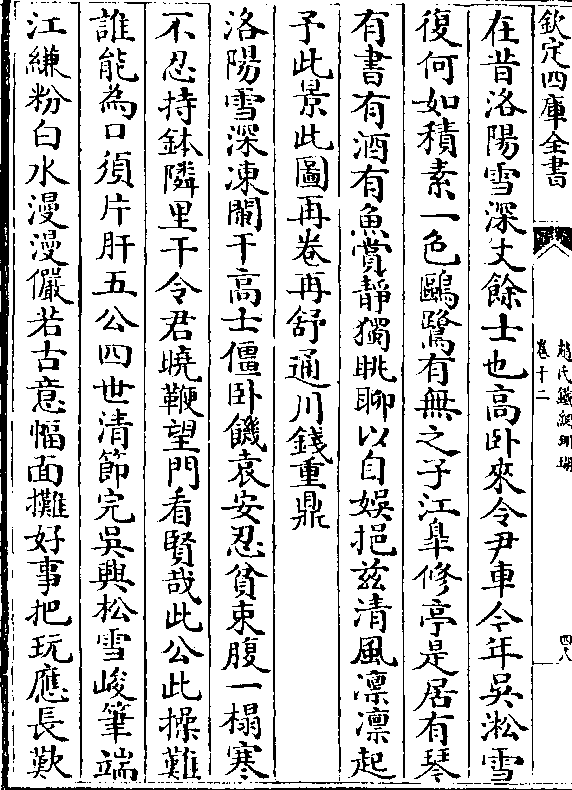 欽定四庫全書
趙氏鐵網珊瑚
卷十二
四八
在昔洛陽雪深丈餘士也高卧來令尹車今年吳淞雪
復何如積素一色鷗鷺有無之子江臯修亭是居有琴
有書有酒有魚賞靜獨眺聊以自娱挹兹清風凛凛起
予此景此圖再卷再舒通川錢重鼎
洛陽雪深凍闌干高士僵卧饑袁安忍貧束腹一榻寒
不忍持鉢隣里干令君曉鞭望門看賢哉此公此操難
誰能為口須片肝五公四世清節完吳興松雪峻筆端
江縑粉白水漫漫儼若古意幅面攤好事把玩應長歎